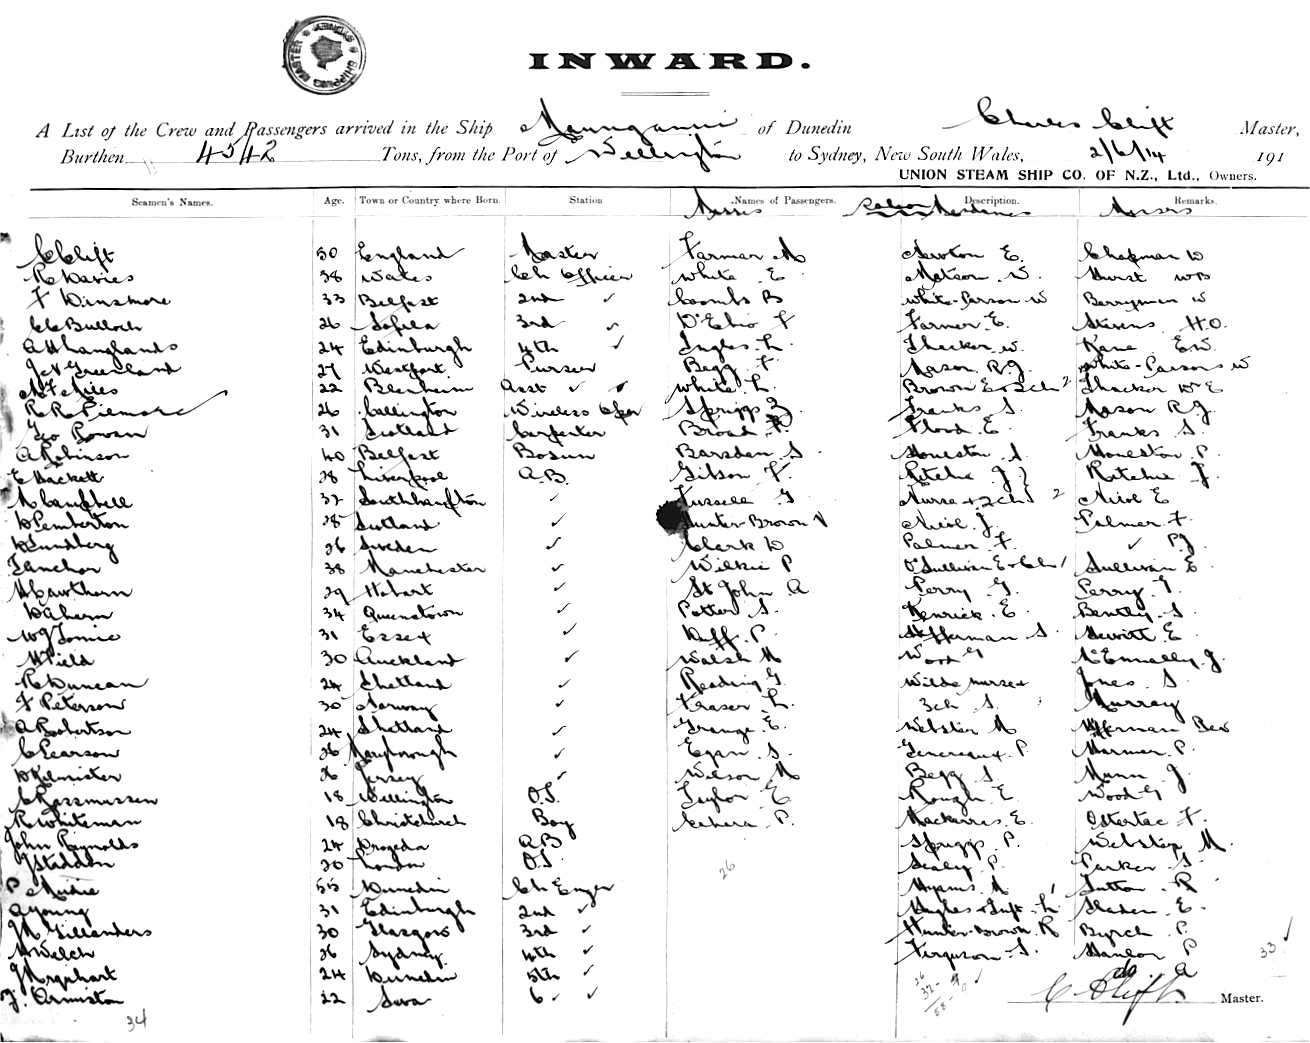 INWARD.
A List of the Crew and Passengers arrived in the Ship Maunganui of Dunedin Charles Clift Master,
Burthen 4542 Tons, from the Port of Wellington to Sydney, New South Wales, 2/6/14 191
UNION STEAM SHIP CO. OF N.Z., Ltd., Owners.
Seamen's Names. Age. Town or Country where Born. Station Names of Passengers. Description. Remarks.
Misses Saloon Mesdames Messrs
C Clift 50 England Master Farmer M Newton E. Chapman W
R Davies 38 Wales Ch Officer White E Matson W. Hurst WB
F Dinsmore 33 Belfast 2nd ✓ Coombs B White-Parson W Berryman W
CC Bulloch 26 Sofala 3rd ✓ D'Ehio F Farmer E. Stevens H.O.
A H Langlands 24 Edinburgh 4th ✓ Ingles L. Thacker W. Kane E.W.
J N Greenland 27 Westport Purser Begg F Mason R.J. White-Parsons W
M F Miles 22 Blenheim Asst ✓ ✓ White L. Brown E + 2ch 2 Thacker Wm E
R R Pilmore 26 Callington Wireless Oper Sprigg Z Franks S. Mason R.J
Geo Rowan 31 Scotland Carpenter Broad F. Flood E. Franks S
A Robinson 40 Belfast Bosun Barsden S. Honeston A Honeston P.
E Hackett 28 Liverpool A.B. Gibson F Ritchie J. Ritchie J.
N Campbell 32 Southhampton ✓ Fussell G Nurse + 2 ch 2 Nicol E
D Pemberton 28 Scotland ✓ Hunter-Brown V Nicol J. Palmer F.
D Lundberg 26 Sweden ✓ Clark D Palmer F. ✓ P.J.
T Anchor 38 Manchester ✓ Wilkie P O'Sullivan E + Ch 1 Sullivan E
H Cawthorn 29 Hobart ✓ St John A Perry G. Perry G.
D Ahern 34 Queenstown ✓ Potter S. Kenrick E. Bently S.
W J Tomic 31 Essex ✓ Duff P. Heffernan S. Hewitt E
H Field 30 Auckland ✓ Walsh M Wood G McEnnally J.
R Duncan 24 Shetland ✓ Reading G. Wilde nurse + Jones S.
F Peterson 30 Norway ✓ Fraser L. 3ch S. Murray
A Robertson 24 Shetland ✓ Grange E. Webster M Heffernan Rev
C Pearson 26 Maryborough ✓ Egan S. Genereaux P. Marmer P.
D Kilmister 26 Jersey ✓ Wilson M Begg S. Munn J.
C Rassmussen 18 Wellington O.S. Taylor E Rough E. Wood G
R Whiteman 18 Christchurch Boy P. Mackerras E. Ostertac F.
John Reynolds 24 A B Sprigg P. Webster M.
J Staddon 20 London O.S. Sealy P. Parker S
P Mudie 55 Dunedin Ch Enger Hyams M 1 Sutton R
A Young 31 Edinburgh 2nd ✓ Hughes + Inft L. Sladen E.
J M Gillanders 30 Glasgow 3rd ✓ Hunter-Brown R Byrch P.
H Welch 26 Sydney 4th ✓ Ferguson S. Hanlon P
J M Urquhart 24 Dunedin 5th ✓ do A
J. Ormiston 22 Suva 6 ✓ C Clift Master.
26
33 ✓
34